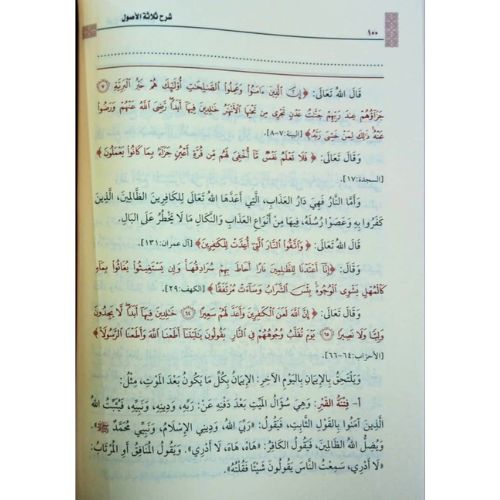 ١٠٠
شرح ثلاثة الأصول
قَالَ اللهُ تَعَالَى: ﴿إِنَّ الَّذِينَ ءَامَنُوا وَعَمِلُوا الصَّالِحَاتِ أُولَٰئِكَ هُمْ خَيْرُ الْبَرِيَّةِ ۝٧
جَزَاؤُهُمْ عِندَ رَبِّهِمْ جَنَّاتُ عَدْنٍ تَجْرِي مِن تَحْتِهَا الْأَنْهَارُ خَالِدِينَ فِيهَا أَبَدًا رَّضِيَ اللَّهُ عَنْهُمْ وَرَضُوا
عَنْهُ ذَٰلِكَ لِمَنْ خَشِيَ رَبَّهُ﴾ [البينة: ٧-٨].
وَقَالَ تَعَالَى: ﴿فَلَا تَعْلَمُ نَفْسٌ مَّا أُخْفِيَ لَهُم مِّن قُرَّةِ أَعْيُنٍ جَزَاءً بِمَا كَانُوا يَعْمَلُونَ﴾
[السجدة: ١٧].
وَأَمَّا النَّارُ فَهِيَ دَارُ العَذَابِ، الَّتِي أَعَدَّهَا اللهُ تَعَالَى لِلْكَافِرِينَ الظَّالِمِينَ، الَّذِينَ
كَفَرُوا بِهِ وَعَصَوْا رُسُلَهُ، فِيهَا مِنْ أَنْوَاعِ العَذَابِ وَالنَّكَالِ مَا لَا يَخْطُرُ عَلَى البَالِ.
قَالَ اللهُ تَعَالَى: ﴿وَاتَّقُوا النَّارَ الَّتِي أُعِدَّتْ لِلْكَافِرِينَ﴾ [آل عمران: ١٣١].
وَقَالَ: ﴿إِنَّا أَعْتَدْنَا لِلظَّالِمِينَ نَارًا أَحَاطَ بِهِمْ سُرَادِقُهَا وَإِن يَسْتَغِيثُوا يُغَاثُوا بِمَاءٍ
كَالْمُهْلِ يَشْوِي الْوُجُوهَ بِئْسَ الشَّرَابُ وَسَاءَتْ مُرْتَفَقًا﴾ [الكهف: ٢٩].
وَقَالَ تَعَالَى: ﴿إِنَّ اللَّهَ لَعَنَ الْكَافِرِينَ وَأَعَدَّ لَهُمْ سَعِيرًا ۝٦٤ خَالِدِينَ فِيهَا أَبَدًا لَّا يَجِدُونَ
وَلِيًّا وَلَا نَصِيرًا ۝٦٥ يَوْمَ تُقَلَّبُ وُجُوهُهُمْ فِي النَّارِ يَقُولُونَ يَا لَيْتَنَا أَطَعْنَا اللَّهَ وَأَطَعْنَا الرَّسُولَا﴾
[الأحزاب: ٦٤-٦٦].
وَيَلْتَحِقُ بِالإِيمَانِ بِاليَوْمِ الآخِرِ: الإِيمَانُ بِكُلِّ مَا يَكُونُ بَعْدَ المَوْتِ، مِثْلُ:
أ- فِتْنَةُ القَبْرِ: وَهِيَ سُؤَالُ المَيِّتِ بَعْدَ دَفْنِهِ عَنْ: رَبِّهِ، وَدِينِهِ، وَنَبِيِّهِ، فَيُثَبِّتُ اللهُ
الَّذِينَ آمَنُوا بِالقَوْلِ الثَّابِتِ، فَيَقُولُ: «رَبِّيَ اللهُ، وَدِينِي الإِسْلَامُ، وَنَبِيِّي مُحَمَّدٌ ﷺ».
وَيُضِلُّ اللهُ الظَّالِمِينَ، فَيَقُولُ الكَافِرُ: «هَاهْ، هَاهْ، لَا أَدْرِي». وَيَقُولُ المُنَافِقُ أَوِ المُرْتَابُ:
«لَا أَدْرِي، سَمِعْتُ النَّاسَ يَقُولُونَ شَيْئًا فَقُلْتُهُ»